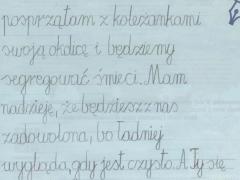 posprzątam z koleżankami
swoją okolicę i będziemy
segregować śmieci. Mam
nadzieję, że będziesz z nas
zadowolona, bo ładniej
wygląda, gdy jest czysto. A Ty się